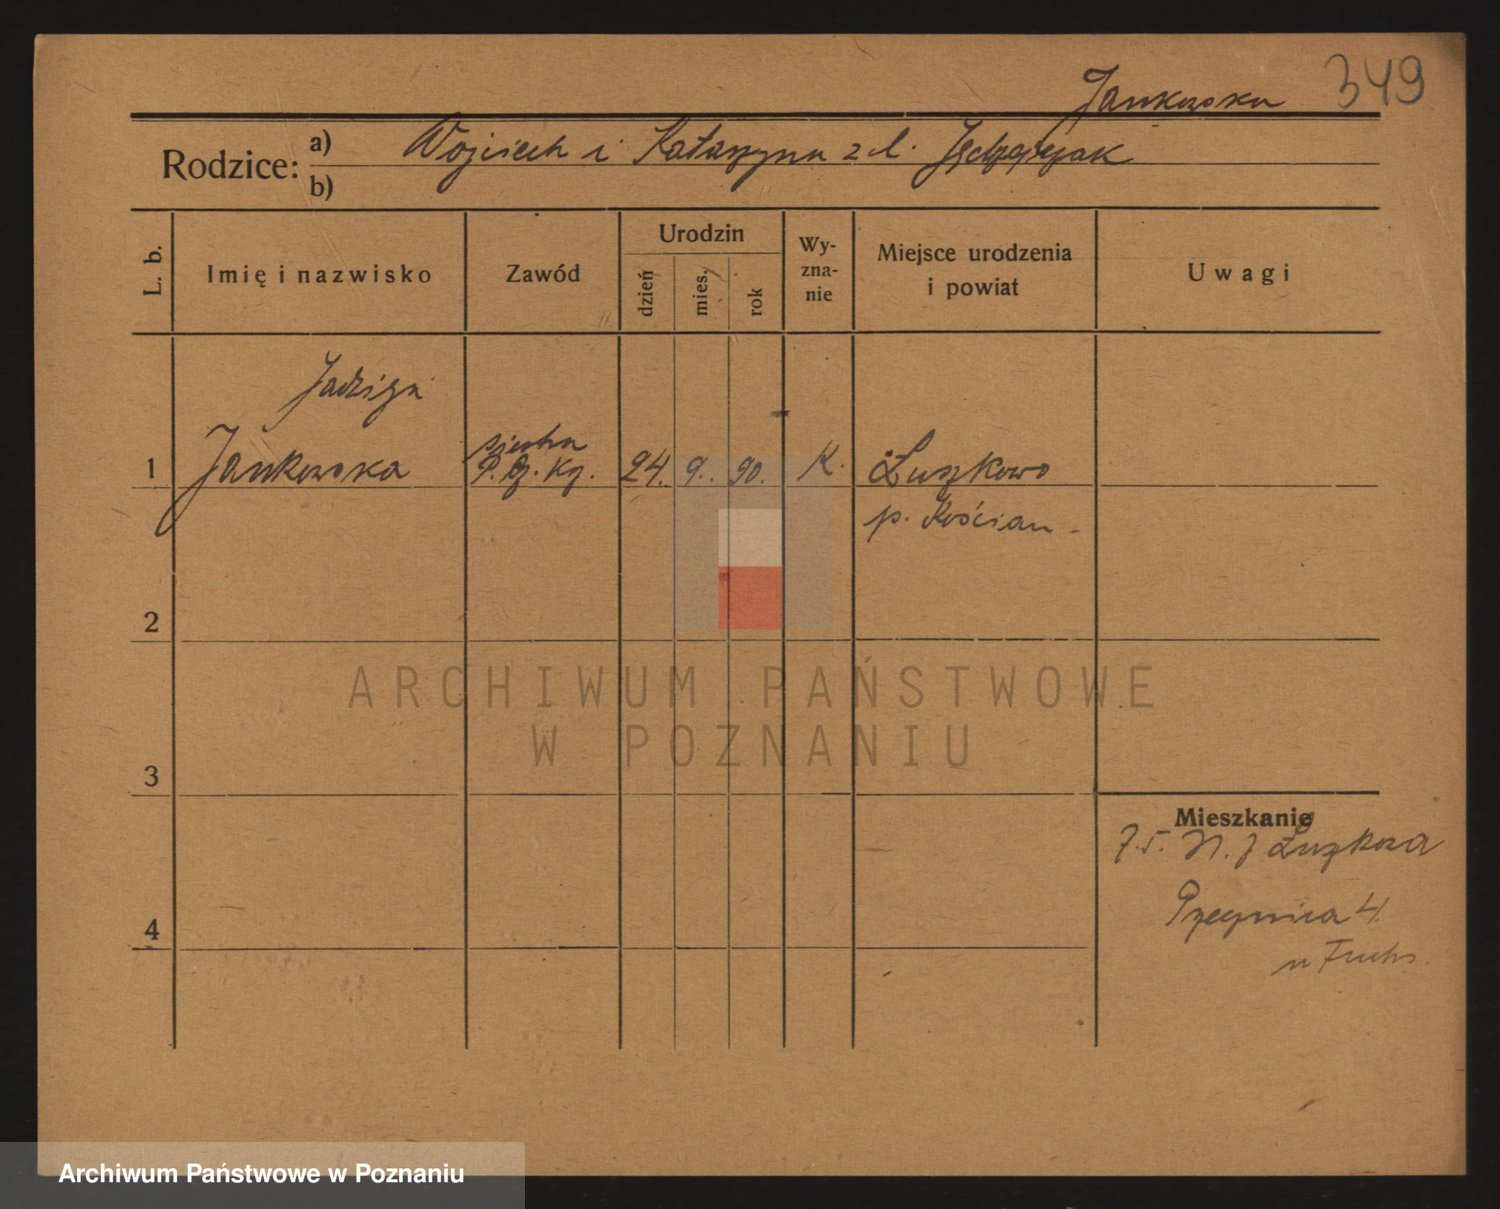 349
Jankowska
Rodzice: a) Wojciech i Katarzyna z d. Jędrzejczak
b)
L. b. Imię i nazwisko Zawód Urodzin dzień mies. rok Wyzna-nie Miejsce urodzenia i powiat Uwagi
Jadwiga
siostra
1 Jankowska P. Cz. Kz. 24. 9. 90. K. Łuszkowo
p. Kościan
2
ARCHIWUM PAŃSTWOWE
W POZNANIU
3
Mieszkanie
7.5. z Łuszkowa
4 4
u Fuchs.
Archiwum Państwowe w Poznaniu